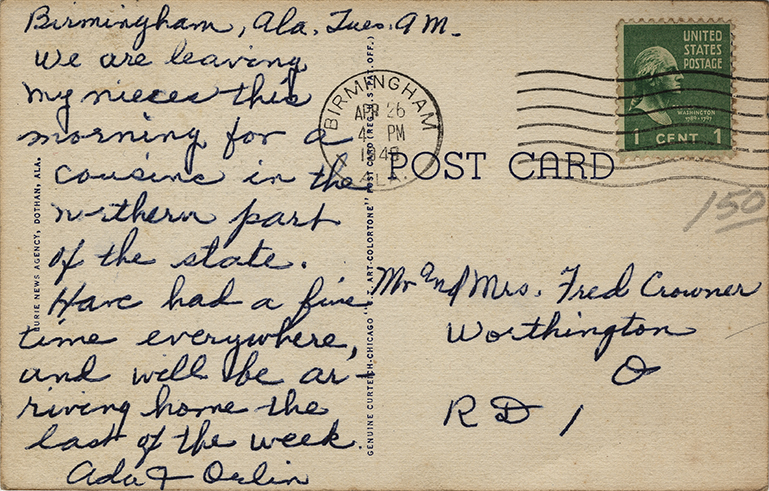 Birmingham, Ala. Tues. AM.
We are leaving
my nieces this
morning for a
cousins in the
northern part
of the state.
Have had a fine
time everywhere,
and will be ar-
riving home the
last of the week.
Ada & Orlin
URIE NEWS AGENCY, DOTHAN, ALA.
GENUINE CURTEICH-CHICAGO "C.T. ART-COLORTONE" POST CARD (REG. U.S. PAT. OFF.)
BIRMINGHAM
APR 26
4 PM
ALA.
POST CARD
UNITED
STATES
POSTAGE
WASHINGTON
1789-1797
1 CENT 1
150
Mr and Mrs. Fred Crowner
Worthington
O
RD 1